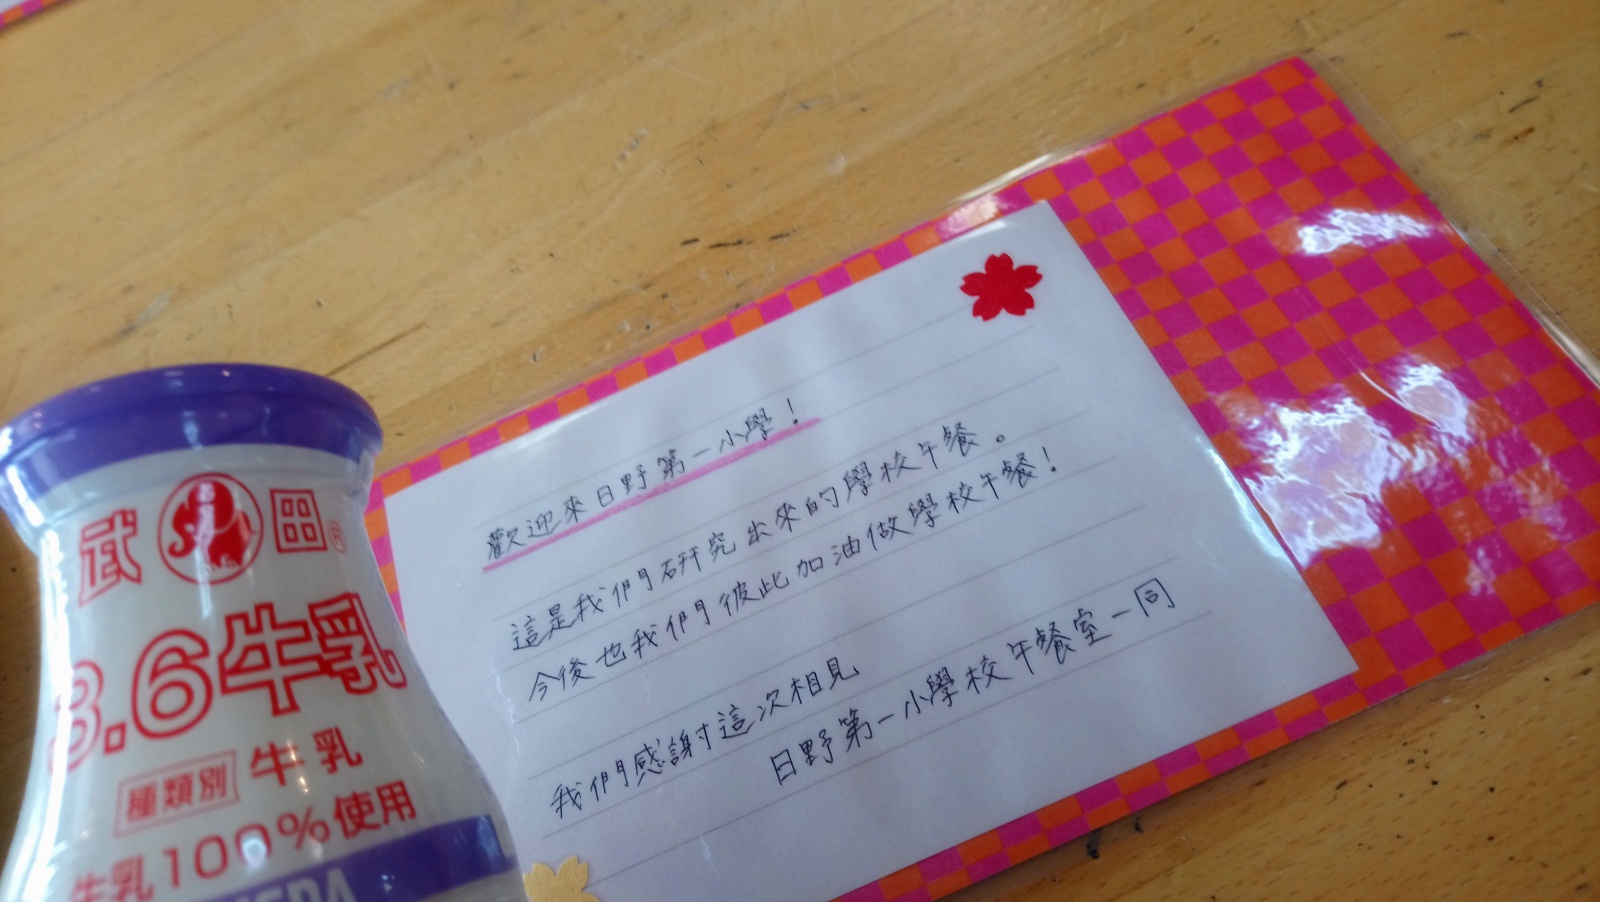 歡迎來日野第一小學！
這是我們研究出來的學校午餐。
今後也我們彼此加油做學校午餐！
我們感謝這次相見
日野第一小學校午餐室一同
武田®
3.6牛乳
種類別 牛乳
牛乳100%使用